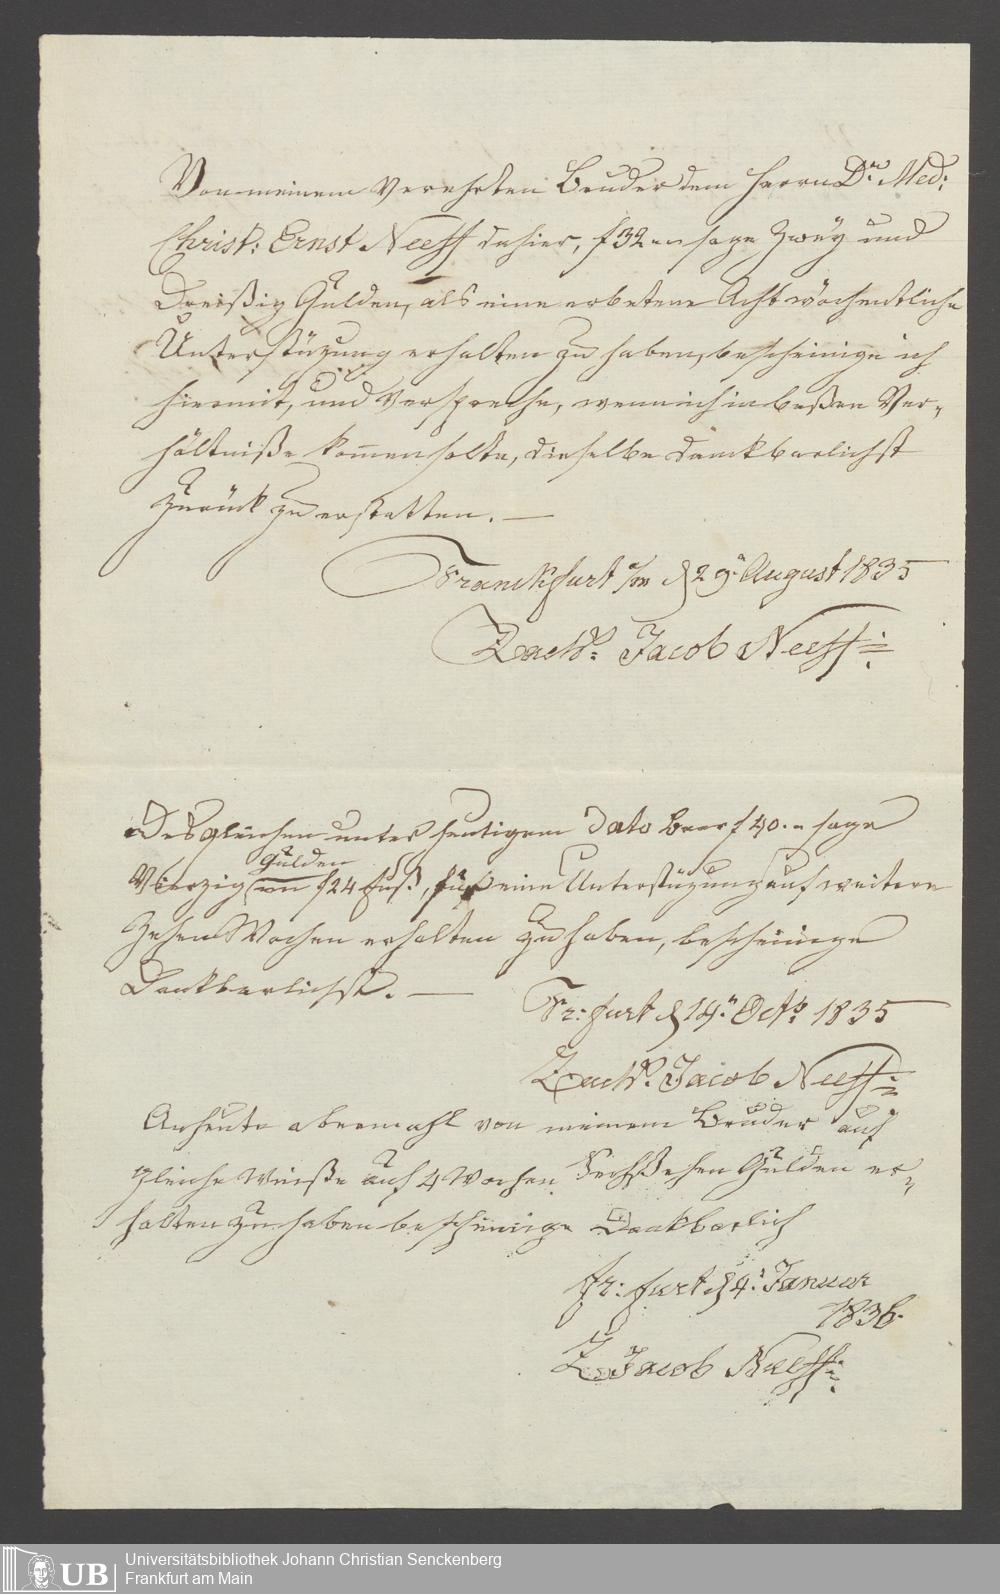 Von meinem Verehrten Bruder dem Herrn Dr. Med:
Christ: Ernst Neeff dahier, f 32 sage Zwey und
Dreißig Gulden, als eine erbetene Acht wöchentliche
Unterstüzung erhalten zu haben, bescheinige ich
hiermit, und verspreche, wenn ich in beßere Ver-
hältniße kommen solte, dieselbe dankbarlichst
zurück zu erstatten. —
Franckfurt a/m d 29 August 1835
Zach: Jacob Neeff
Desgleichen unter heutigem Dato f 40. sage
Vierzig Gulden im f 24 Fuß, für eine Unterstüzung auf weitere
Zehen Wochen erhalten zu haben, bescheinige
Dankbarlichst. —
Fr: furt d 14n Octb: 1835
Zach: Jacob Neeff
Anheute abermahl von meinem Bruder auf
gleiche Weiße auf 4 Wochen Sechszehen Gulden er-
halten zu haben bescheinige Dankbarlich
fr: furt d 4: Januar
1836.
Z Jacob Neeff
UB
Universitätsbibliothek Johann Christian Senckenberg
Frankfurt am Main